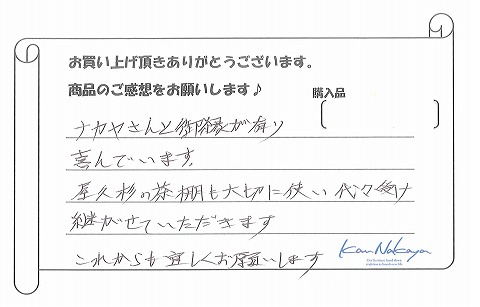 お買い上げ頂きありがとうございます。
商品のご感想をお願いします♪
購入品
ナカヤさんと御縁が有り
喜んでいます。
屋久杉の茶棚も大切に使い代々受け
継がせていただきます
これからも宜しくお願いします
Kan Nakaya